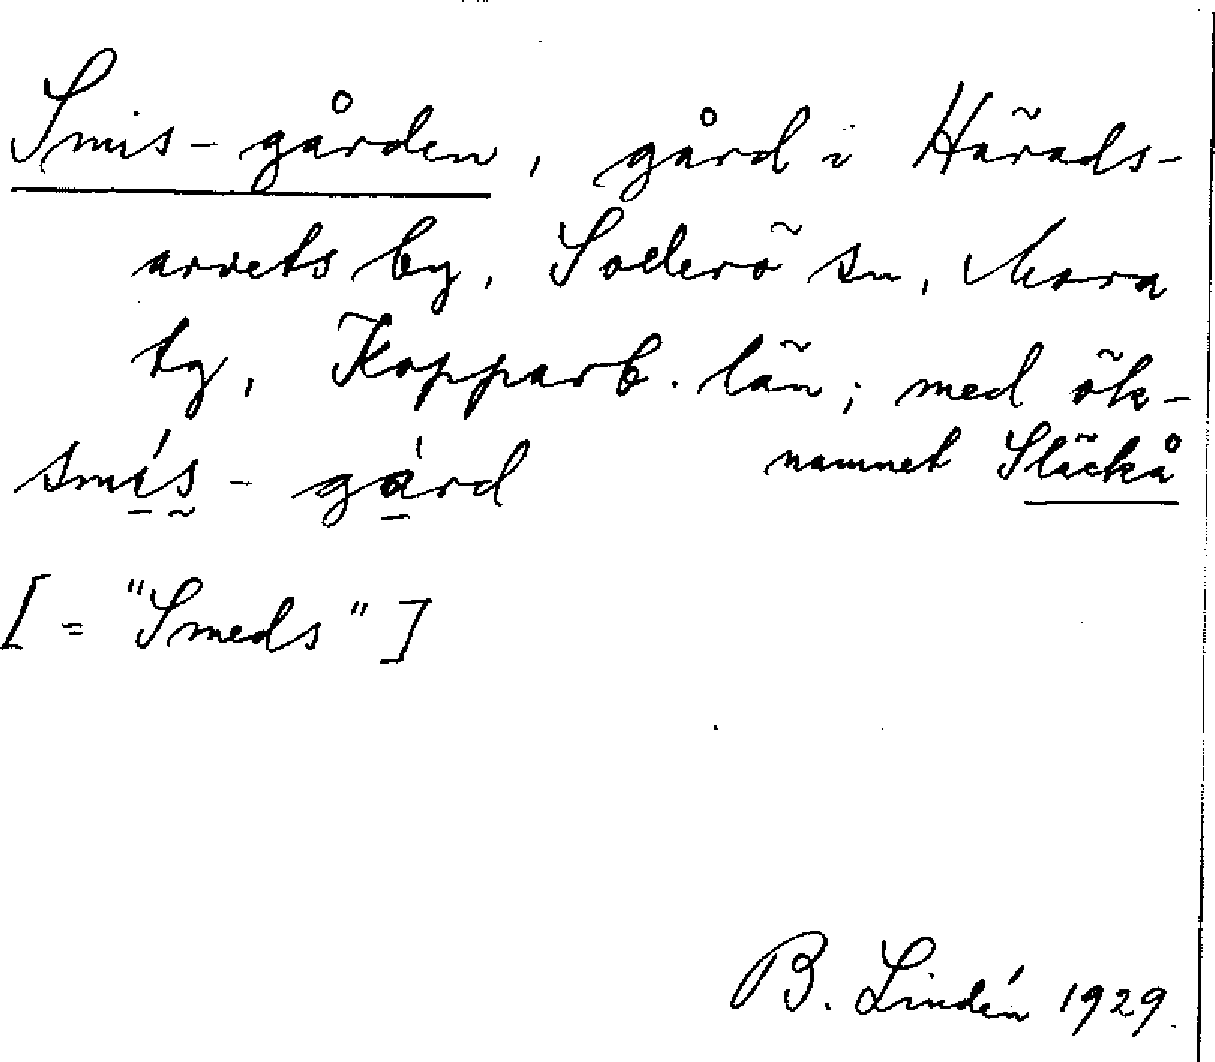 Smis-gården, gård i Härads-
arvets by, Sollerö sn, Mora
tg, Kopparb. län; med ök-
namnet Släckå
smís - gàrd
[= "Smeds"]
B. Lindén 1929.